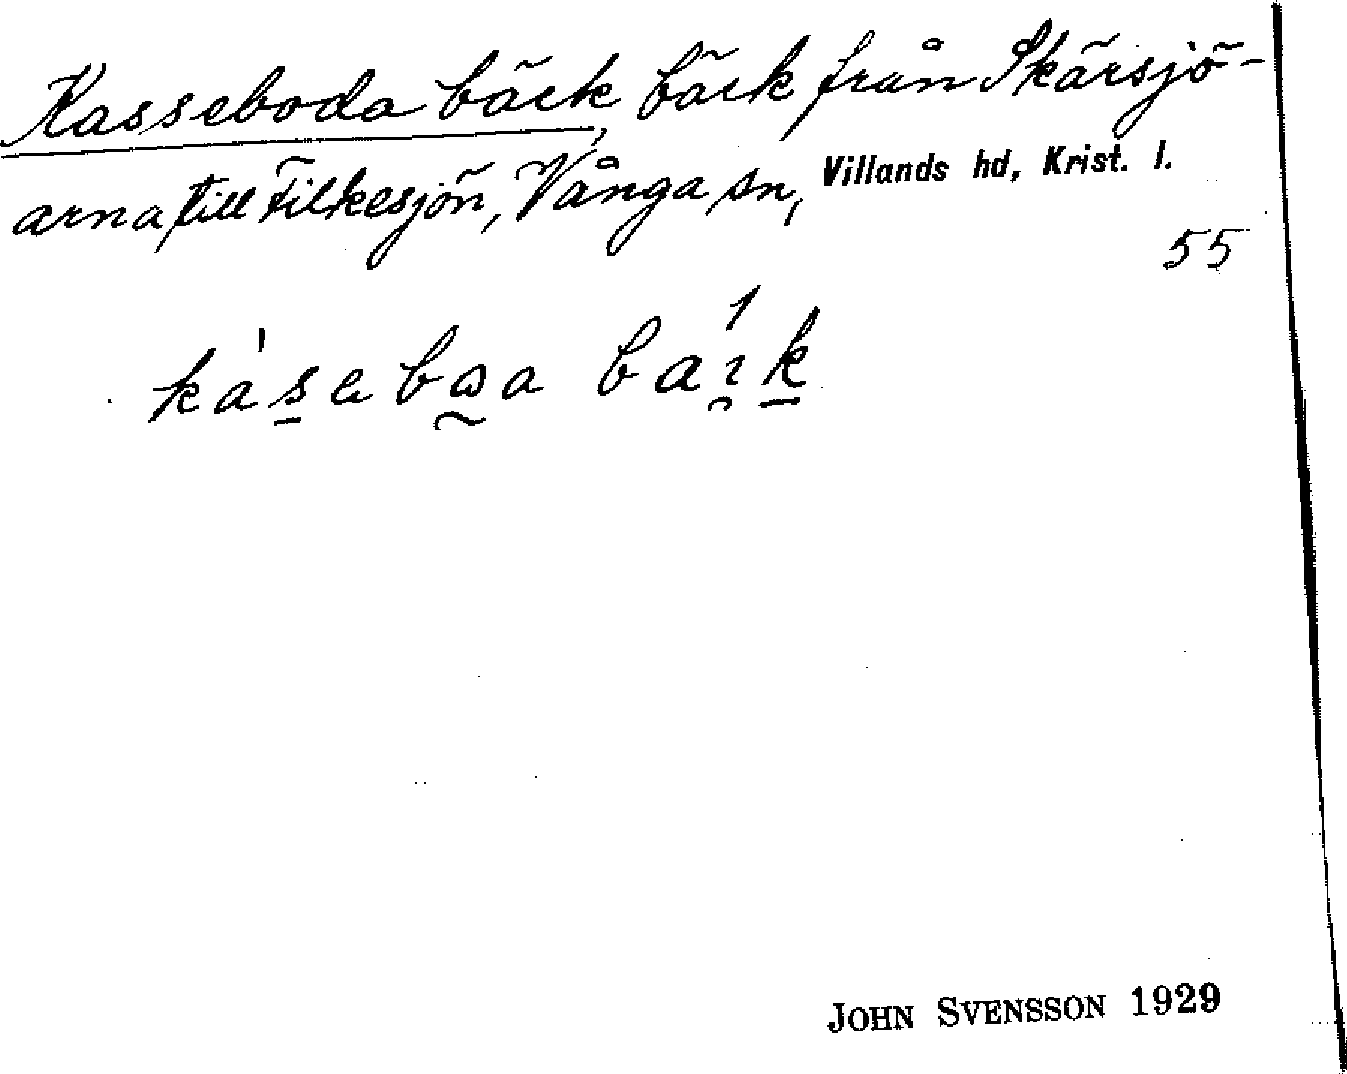 Kasseboda bäck, bäck från Skärsjö-
arna till Filkesjön, Vånga sn, Villands hd, Krist. l.
55
JOHN SVENSSON 1929